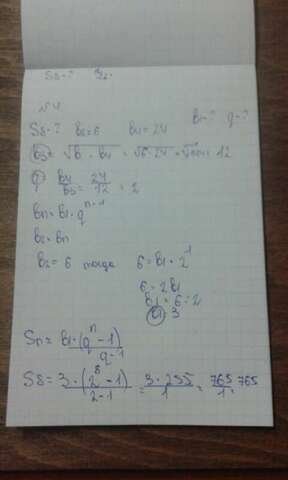 S8-?
№4
b1-? q-?
S8-? b2=6 b4=24
b3= √b2·b4 = √6·24 = √144 = 12
q= b4/b3 = 24/12 = 2
bn=b1·q^n-1
b2=bn
b2=6 тогда 6=b1·2^1
6=2b1
b1=6:2
b1=3
Sn=b1·(q^n-1)/q-1
S8=3·(2^8-1)/2-1 = 3·255/1 = 765/1 = 765